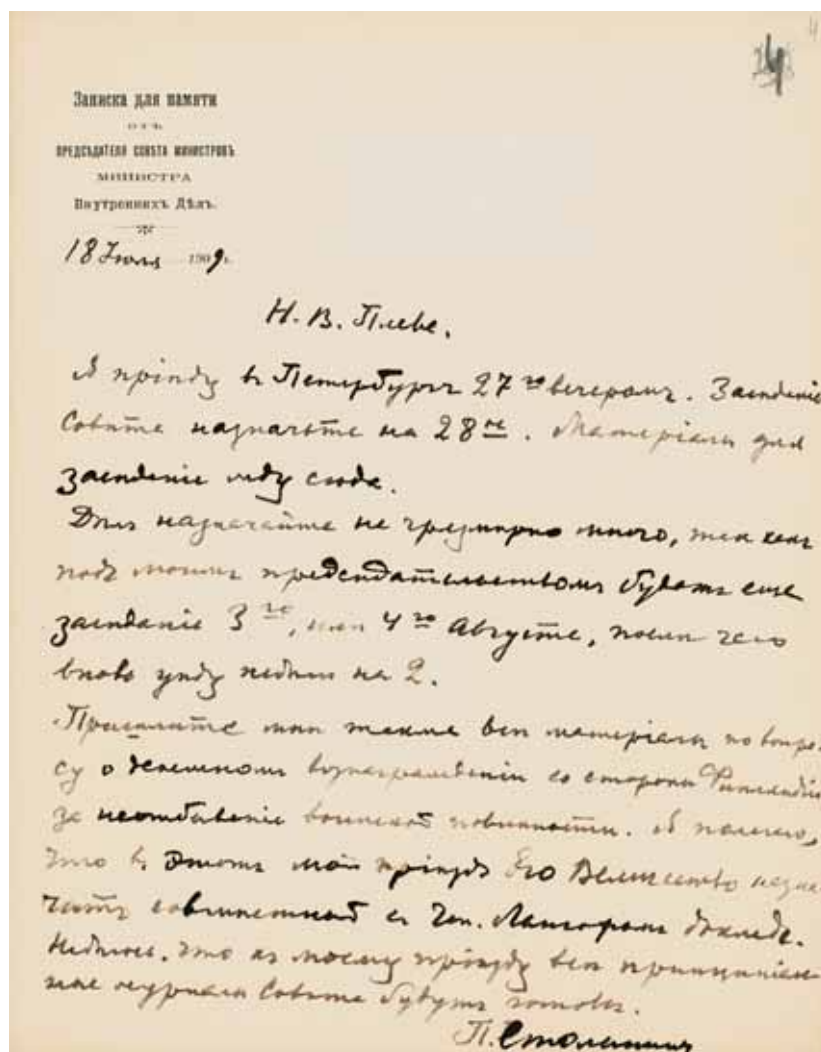 4
4
Записка для памяти
отъ
ПРЕДСѢДАТЕЛЯ СОВѢТА МИНИСТРОВЪ
МИНИСТРА
Внутреннихъ Дѣлъ.
18 Июля 1909 г.
Н. В. Плеве.
Я пріѣду въ Петербургъ 27го вечеромъ. Засѣданіе
Совѣта назначьте на 28ое. Матеріалы для
засѣданія жду сюда.
Дѣлъ назначайте не чрезмѣрно много, такъ какъ
подъ моимъ предсѣдательствомъ будетъ еще
засѣданіе 3го, или 4го Августа, послѣ чего
вновь уѣду недѣли на 2.
Пришлите мнѣ также всѣ матеріалы по вопро-
су о денежномъ вознагражденіи со стороны Финляндіи
за неотбываніе воинской повинности. Я полагаю,
что въ этотъ мой пріѣздъ Его Величество назна-
читъ совмѣстный съ Ген. Лангофомъ докладъ.
Надѣюсь, что къ моему пріѣзду всѣ принципіаль-
ные журналы Совѣта будутъ готовы.
П. Столыпинъ